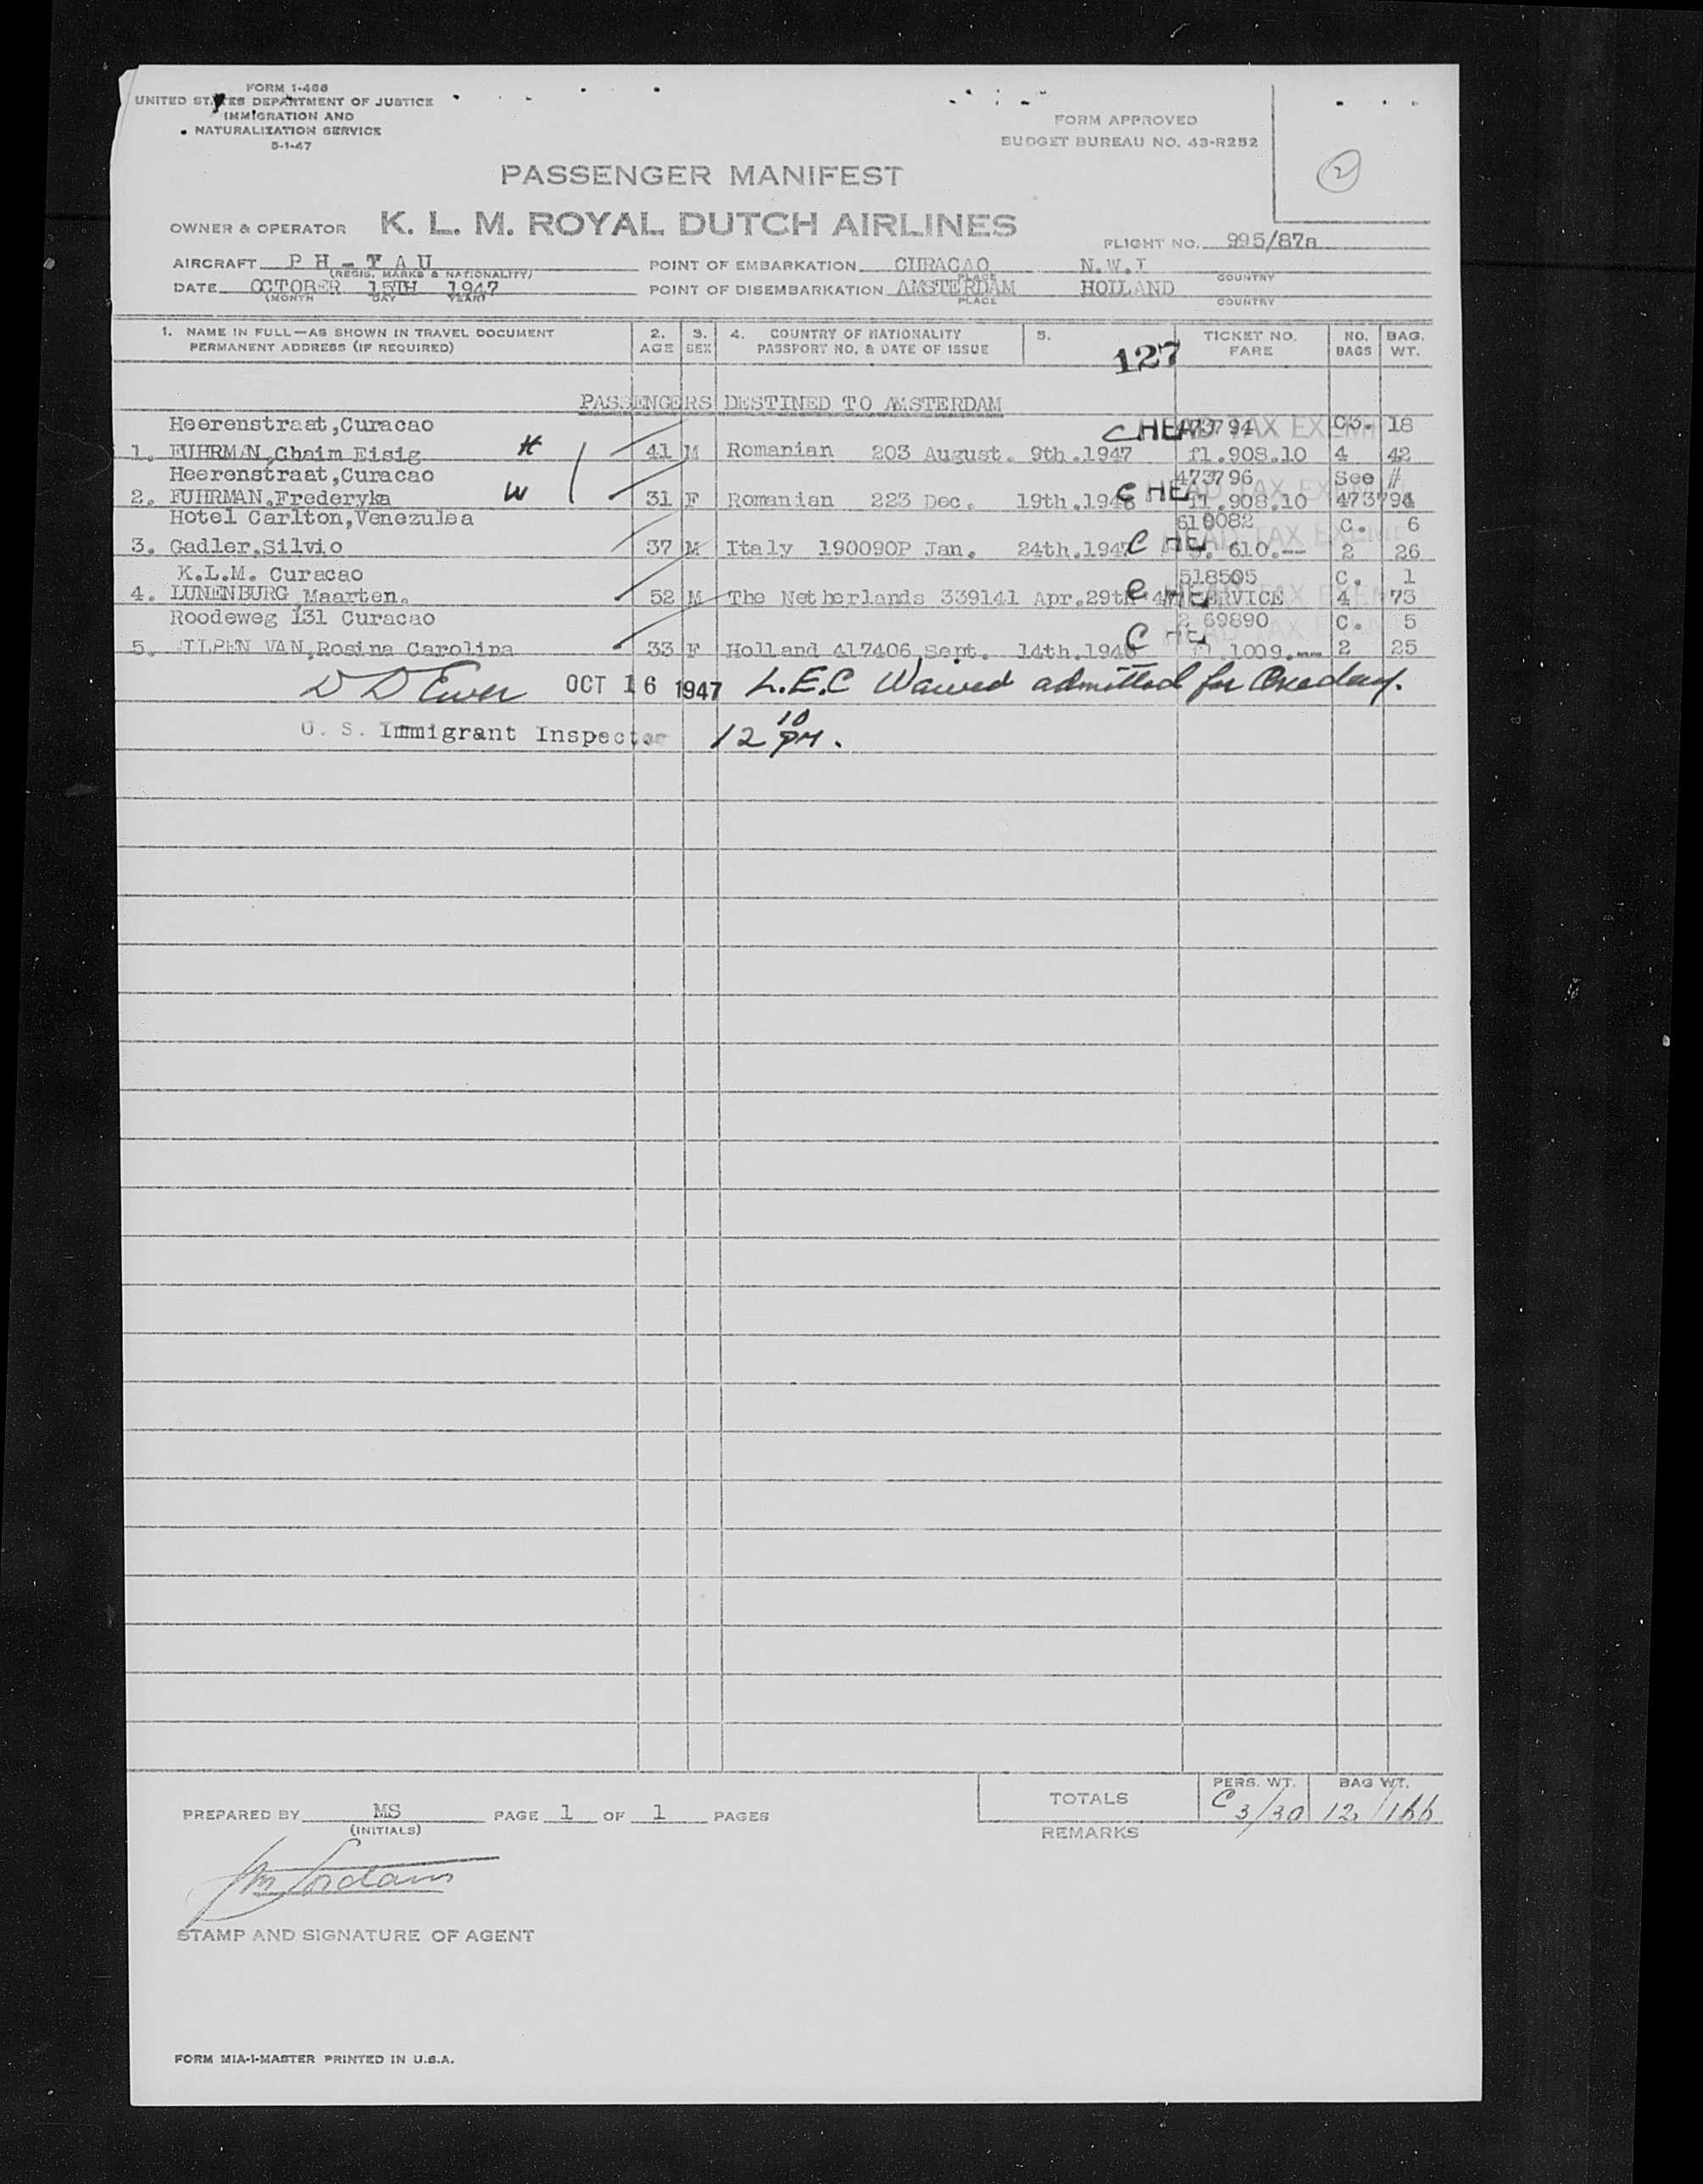 FORM I-466
UNITED STATES DEPARTMENT OF JUSTICE
IMMIGRATION AND
NATURALIZATION SERVICE
5-1-47
FORM APPROVED
BUDGET BUREAU NO. 43-R252
2
PASSENGER MANIFEST
OWNER & OPERATOR K. L. M. ROYAL DUTCH AIRLINES
FLIGHT NO. 995/87a
AIRCRAFT P H - T A U POINT OF EMBARKATION CURACAO N.W.I
(REGIS. MARKS & NATIONALITY) PLACE COUNTRY
DATE OCTOBER 15TH 1947 POINT OF DISEMBARKATION AMSTERDAM HOLLAND
(MONTH DAY YEAR) PLACE COUNTRY
1. NAME IN FULL—AS SHOWN IN TRAVEL DOCUMENT 2. 3. 4. COUNTRY OF NATIONALITY 5. TICKET NO. NO. BAG.
PERMANENT ADDRESS (IF REQUIRED) AGE SEX PASSPORT NO. & DATE OF ISSUE FARE BAGS WT.
127
PASSENGERS DESTINED TO AMSTERDAM
Heerenstraat,Curacao C HEAD TAX EXEMPT 473794 C3. 18
1. FUHRMAN,Chaim Eisig H 41 M Romanian 203 August. 9th.1947 fl.908.10 4 42
Heerenstraat,Curacao 473796 See #
2. FUHRMAN,Frederyka W 31 F Romanian 223 Dec. 19th.1946 C HEAD TAX EXEMPT fl.908.10 473794
Hotel Carlton,Venezulea C. 6
3. Gadler,Silvio 37 M Italy 190090P Jan. 24th.1947 C HEAD TAX EXEMPT 610.-- 2 26
K.L.M. Curacao 518505 C. 1
4. LUNENBURG Maarten. 52 M The Netherlands 339141 Apr.29th 47 C HEAD TAX EXEMPT SERVICE 4 73
Roodeweg 131 Curacao 69890 C. 5
5. VAN,Rosina Carolina 33 F Holland 417406,Sept. 14th.1946 C HEAD TAX fl.1009.-- 2 25
OCT 16 1947 L.E.C Waived admitted for One day.
U. S. Immigrant Inspector 12 10 PM.
TOTALS PERS. WT. BAG WT.
C 3/30 12/166
PREPARED BY MS PAGE 1 OF 1 PAGES
(INITIALS)
REMARKS
STAMP AND SIGNATURE OF AGENT
FORM MIA-1-MASTER PRINTED IN U.S.A.